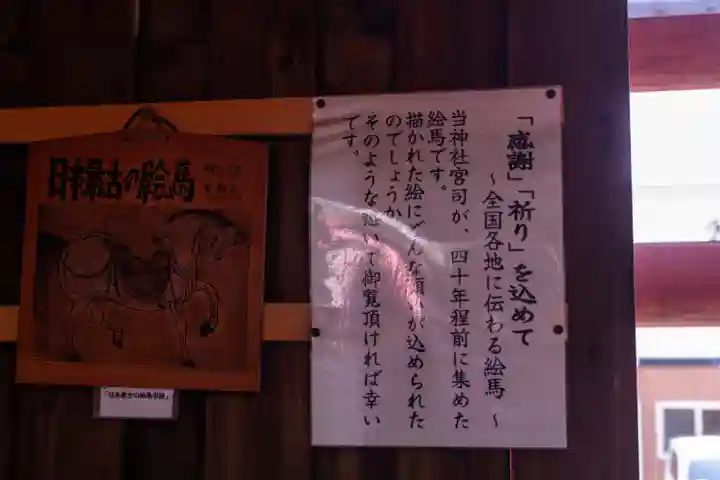 「感謝」「祈り」を込めて
～全国各地に伝わる絵馬～
当神社宮司が、四十年程前に集めた
絵馬です。
描かれた絵にどんな願いが込められた
のでしょうか
そのような想いで御覧頂ければ幸い
です。
日本最古の絵馬